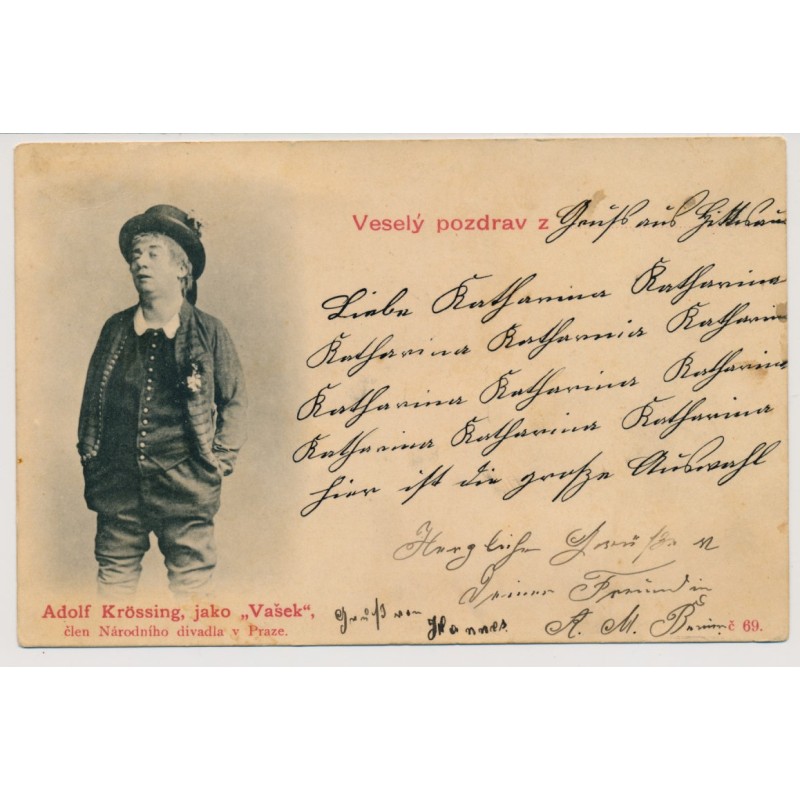 Veselý pozdrav z Gruß aus Hittisau
Liebe Katharina Katharina
Katharina Katharnia Katharin
Katharina Katharina Katharina
Katharina Katharina Katharina
hier ist die große Auswahl
Herzliche Grüße v
Deiner Freundin
Gruß von Hannes A. M.
Adolf Krössing, jako „Vašek“,
člen Národního divadla v Praze.
č 69.